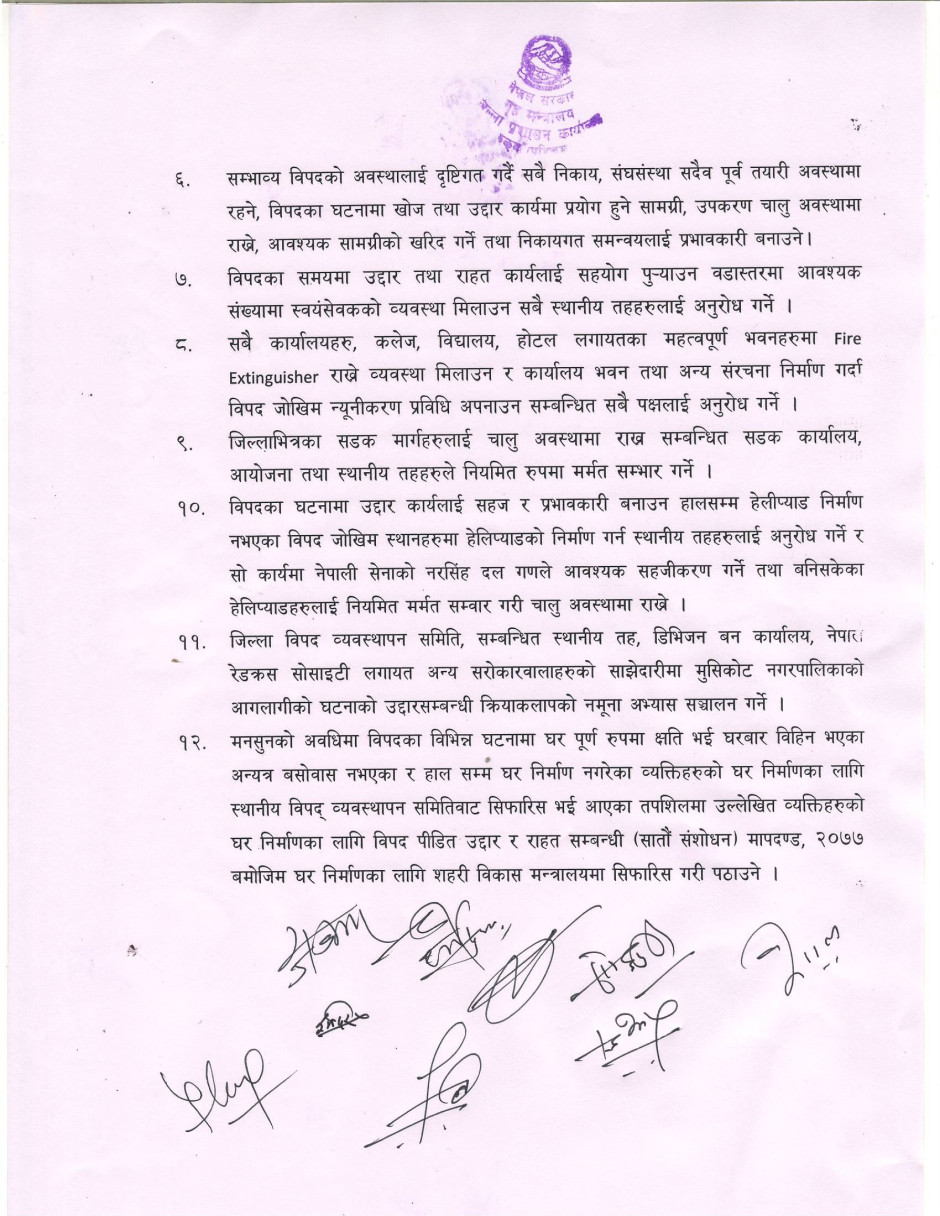 नेपाल सरकार
गृह मन्त्रालय
जिल्ला प्रशासन कार्यालय
६. सम्भाव्य विपदको अवस्थालाई दृष्टिगत गर्दै सबै निकाय, संघसंस्था सदैव पूर्व तयारी अवस्थामा
रहने, विपदका घटनामा खोज तथा उद्दार कार्यमा प्रयोग हुने सामग्री, उपकरण चालु अवस्थामा
राख्ने, आवश्यक सामग्रीको खरिद गर्ने तथा निकायगत समन्वयलाई प्रभावकारी बनाउने।
७. विपदका समयमा उद्दार तथा राहत कार्यलाई सहयोग पुऱ्याउन वडास्तरमा आवश्यक
संख्यामा स्वयंसेवकको व्यवस्था मिलाउन सबै स्थानीय तहहरुलाई अनुरोध गर्ने ।
८. सबै कार्यालयहरु, कलेज, विद्यालय, होटल लगायतका महत्वपूर्ण भवनहरुमा Fire
Extinguisher राख्ने व्यवस्था मिलाउन र कार्यालय भवन तथा अन्य संरचना निर्माण गर्दा
विपद जोखिम न्यूनीकरण प्रविधि अपनाउन सम्बन्धित सबै पक्षलाई अनुरोध गर्ने ।
९. जिल्लाभित्रका सडक मार्गहरुलाई चालु अवस्थामा राख्न सम्बन्धित सडक कार्यालय,
आयोजना तथा स्थानीय तहहरुले नियमित रुपमा मर्मत सम्भार गर्ने ।
१०. विपदका घटनामा उद्दार कार्यलाई सहज र प्रभावकारी बनाउन हालसम्म हेलीप्याड निर्माण
नभएका विपद जोखिम स्थानहरुमा हेलिप्याडको निर्माण गर्न स्थानीय तहहरुलाई अनुरोध गर्ने र
सो कार्यमा नेपाली सेनाको नरसिंह दल गणले आवश्यक सहजीकरण गर्ने तथा बनिसकेका
हेलिप्याडहरुलाई नियमित मर्मत सम्वार गरी चालु अवस्थामा राख्ने ।
११. जिल्ला विपद व्यवस्थापन समिति, सम्बन्धित स्थानीय तह, डिभिजन बन कार्यालय, नेपाल
रेडक्रस सोसाइटी लगायत अन्य सरोकारवालाहरुको साझेदारीमा मुसिकोट नगरपालिकाको
आगलागीको घटनाको उद्दारसम्बन्धी क्रियाकलापको नमूना अभ्यास सञ्चालन गर्ने ।
१२. मनसुनको अवधिमा विपदका विभिन्न घटनामा घर पूर्ण रुपमा क्षति भई घरबार विहिन भएका
अन्यत्र बसोवास नभएका र हाल सम्म घर निर्माण नगरेका व्यक्तिहरुको घर निर्माणका लागि
स्थानीय विपद् व्यवस्थापन समितिवाट सिफारिस भई आएका तपशिलमा उल्लेखित व्यक्तिहरुको
घर निर्माणका लागि विपद पीडित उद्दार र राहत सम्बन्धी (सातौं संशोधन) मापदण्ड, २०७७
बमोजिम घर निर्माणका लागि शहरी विकास मन्त्रालयमा सिफारिस गरी पठाउने ।